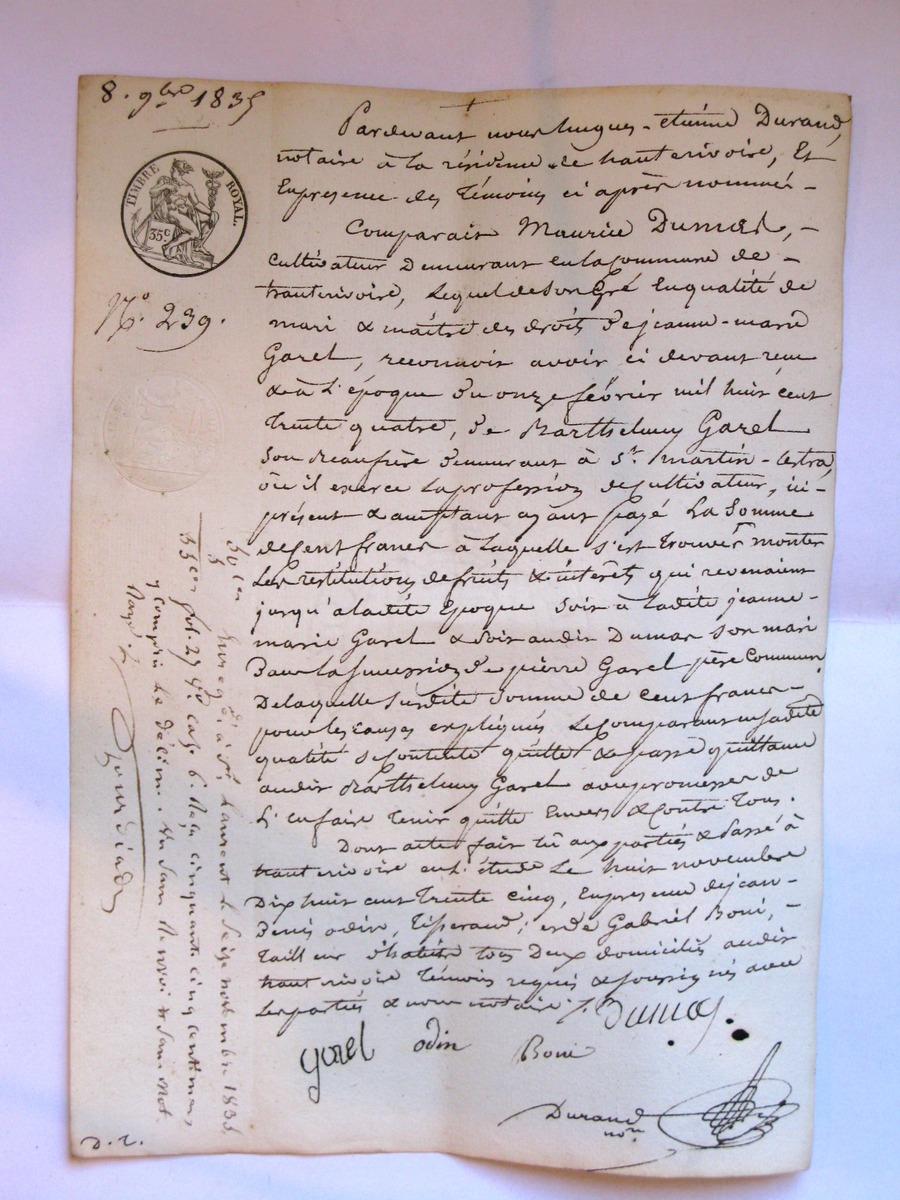 8. 9bre 1835
TIMBRE ROYAL.
35c
No. 239.
Pardevant nous hugues-etienne Durand,
notaire à la résidence de hauterivoire, Et
En presence des Témoins ci après nommés -
Comparait Maurice Dumas, -
Cultivateur Demeurant en la Commune de -
hauterivoire, Lequel de Son Gré En qualité de
mari & maître des droits de jeanne-marie
Garel, reconnoit avoir ci devant reçu
& à L'époque du onze février mil huit cent
Trente quatre, de Barthelemy Garel
Son Beaufrère demeurant à St. martin-Lestra,
où il exerce La profession de Cultivateur, ici
présent & acceptant ayant payé La Somme
de Cent francs à Laquelle S'est trouvée monter
Les restitutions de fruits & intérêts qui revenaient
jusqu'a ladite Epoque Soit à Ladite jeanne-
marie Garel & Soit audit Dumas Son mari
Dans La Succession de pierre Garel père Commun
De laquelle Susdite Somme de Cent francs -
pour les causes expliquées Le Comparant en sadite
qualité se contente quitte & passe quittance
audit Barthelemy Garel avec promesse de
L'en faire Tenir quitte Envers & Contre Tous.
Dont acte fait Lu aux parties & Passé à
hauterivoire en L'étude Le huit novembre
Dix huit cent Trente Cinq, En presence de jean-
Denis odin, Tisserand, et de Gabriel Boni, -
Tailleur d'habits tous Deux domiciliés audit
hauterivoire Témoins requis & soussignés avec
Les parties & nous notaire ./.
Dumas
Garel odin Boni
Durand
nore
Enregé à St Laurent le seize novembre 1835
fol. 27 Vo. case 6. Reçu cinquante cinq centimes
y compris le décime. Un Sans Renvoi & Sans Mot
Rayé.
D. r.